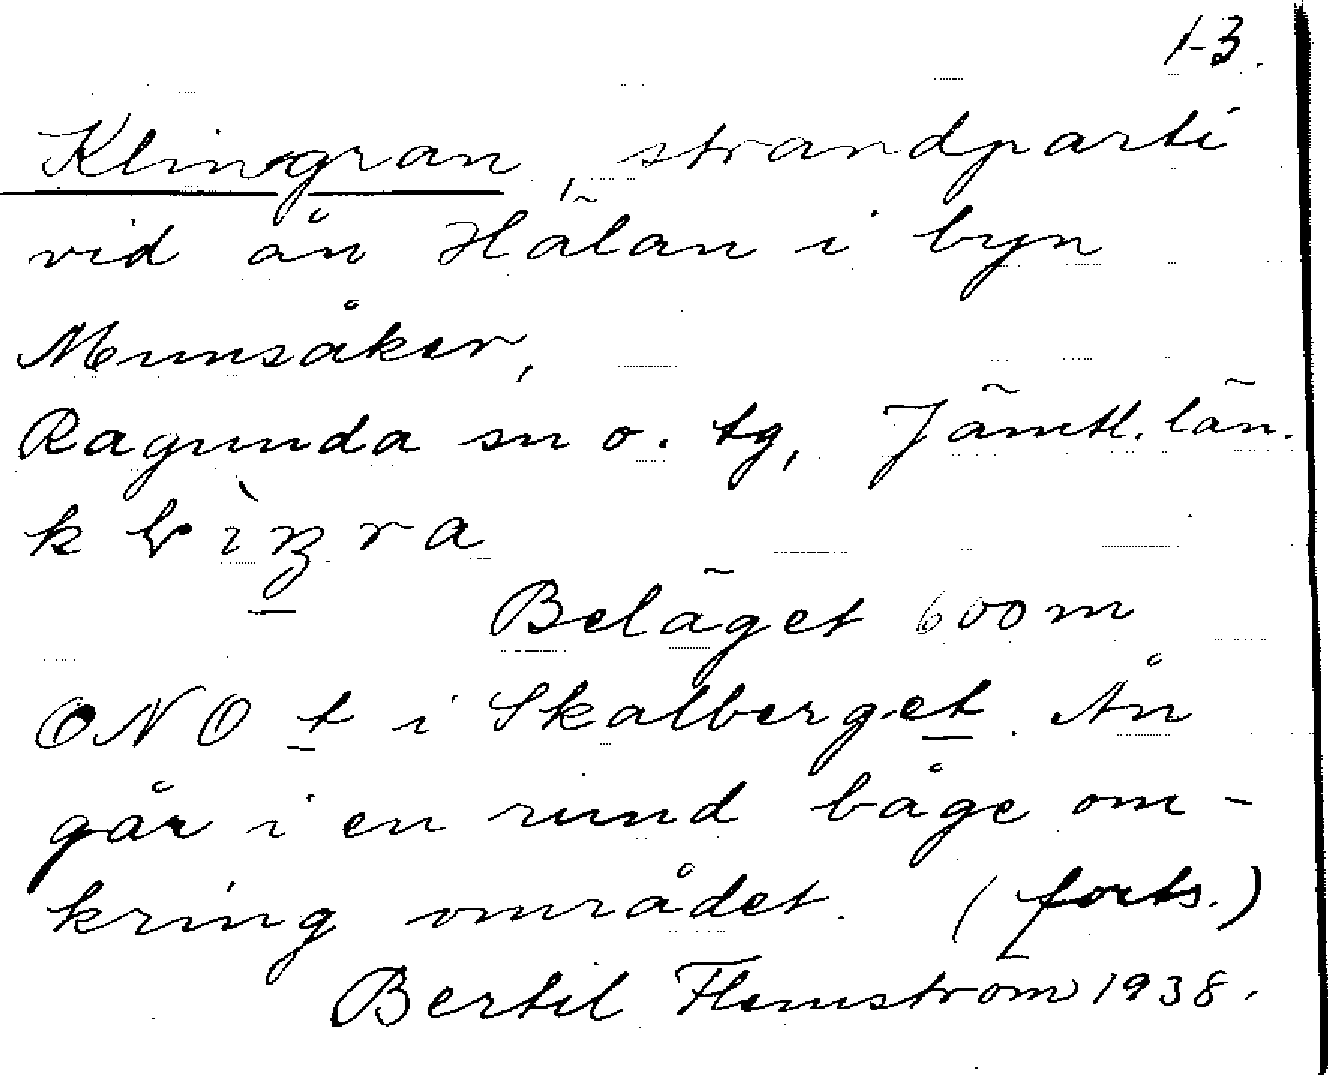 1-3.
Klingran, strandparti
vid ån Hälan i byn
Munsåker,
Ragunda sn o. tg, Jämtl. län.
Beläget 600 m
ONO t i Skalberget. Ån
går i en rund båge om-
kring området. (forts.)
Bertil Flemström 1938.